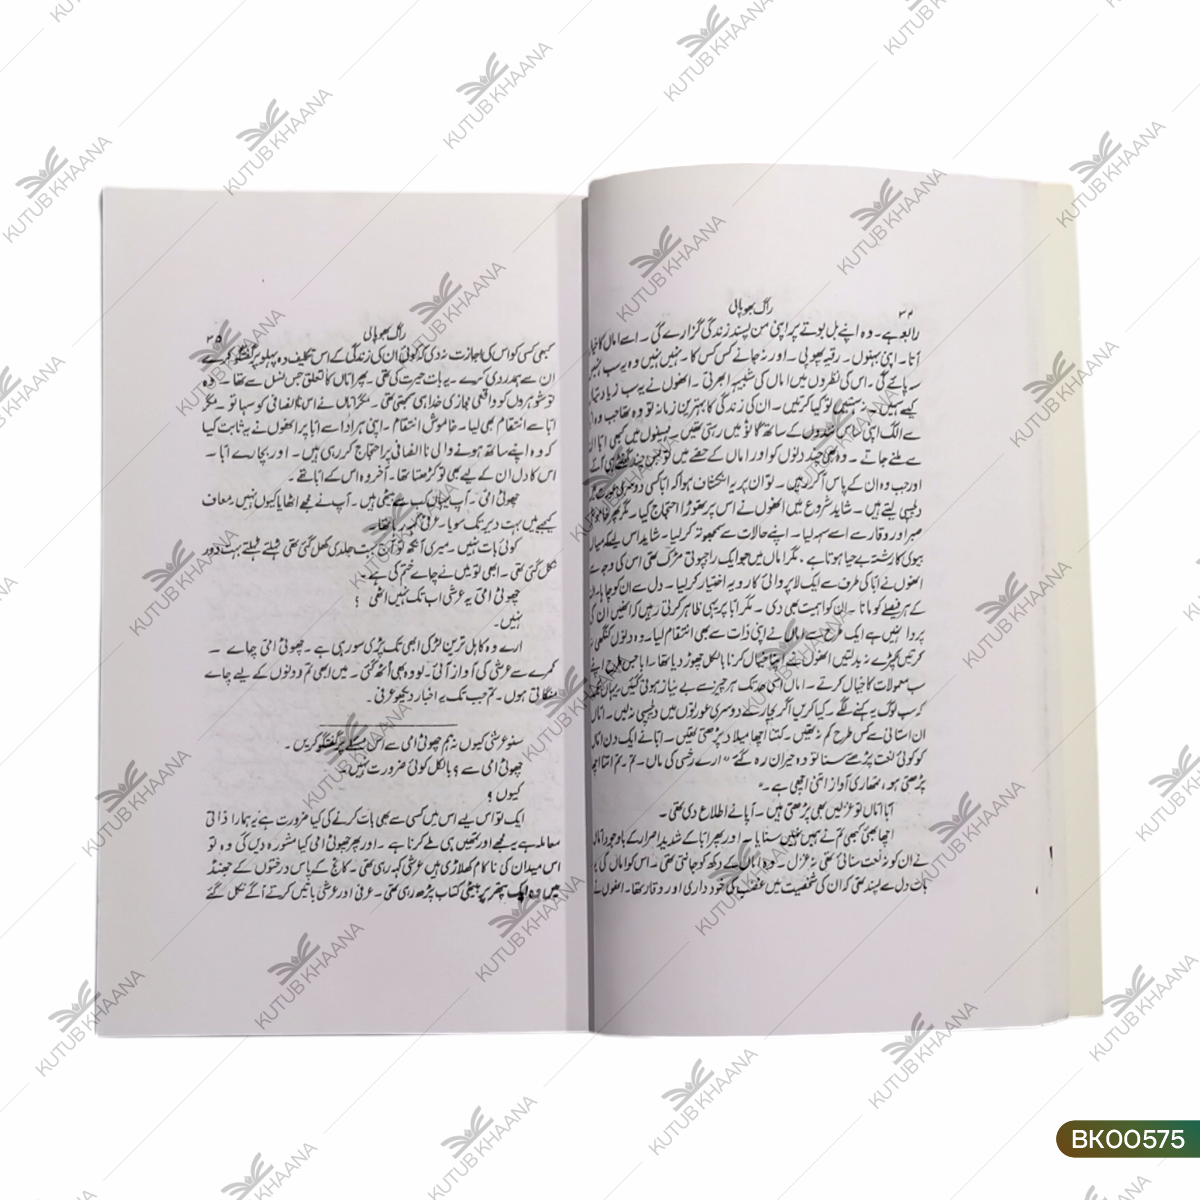 راگ بھوپالی
۳۴
رابعہ ہے ۔ وہ اپنے بل بوتے پر اپنی من پسند زندگی گزارے گی ۔ اسے اماں کا خیال
آتا ۔ اپنی بہنوں ۔ رقیہ پھوپی ۔ اور نہ جانے کس کس کا ۔ نہیں نہیں وہ یہ سب نہیں
سہ پائے گی ۔ اس کی نظروں میں اماں کی شبیہہ ابھرتی ۔ انھوں نے یہ سب زیادتیاں
کیسے سہیں ۔ نہ سہتیں تو کیا کرتیں ۔ ان کی زندگی کا بہترین زمانہ تو وہ تھا جب وہ ابا
سے الگ اپنی ساس نندوں کے ساتھ گاؤں میں رہتی تھیں ۔ مہینوں میں کبھی ابا ان
سے ملنے جاتے ۔ وہ بھی چند دنوں کو اور اماں کے حصے میں تو بس چند گھنٹے ہی آتے
اور جب وہ ان کے پاس آ کر رہیں ۔ تو ان پر یہ انکشاف ہوا کہ ابا کسی دوسری عورت میں
دلچسپی لیتے ہیں ۔ شاید شروع میں انھوں نے اس پر تھوڑا احتجاج کیا ۔ مگر پھر خاموشی
صبر اور وقار سے اسے سہہ لیا ۔ اپنے حالات سے سمجھوتہ کر لیا ۔ شاید اس لیے کہ میاں
بیوی کا رشتہ بے حیا ہوتا ہے ۔ مگر اماں میں جو ایک راجپوتی مڑک تھی اس کی وجہ سے
انھوں نے ابا کی طرف سے ایک لاپروائی کا رویہ اختیار کر لیا ۔ دل سے ان کو چاہا ۔ ان
کے ہر فیصلے کو مانا ۔ ان کو اہمیت بھی دی ۔ مگر ابا پر یہی ظاہر کرتی رہیں کہ انھیں ان کی
پروا نہیں ہے ایک طرح سے اماں نے اپنی ذات سے بھی انتقام لیا ۔ وہ دنوں کنگھی نہ
کرتیں کپڑے نہ بدلتیں انھوں نے اپنا خیال کرنا بالکل چھوڑ دیا تھا ۔ ابا جس طرح اپنے
سب معمولات کا خیال کرتے ۔ اماں اسی حد تک ہر چیز سے بے نیاز ہوتی گئیں یہاں تک
کہ سب لوگ یہ کہنے لگے ۔ کیا کریں اگر بچارے دوسری عورتوں میں دلچسپی نہ لیں ۔ اماں
ان استانی سے کس طرح کم نہ تھیں ۔ کتنا اچھا میلاد پڑھتی تھیں ۔ ابا نے ایک دن اماں
کو کوئی نعت پڑھتے سنا تو وہ حیران رہ گئے " ارے رضی کی ماں ۔ تم ۔ تم اتنا اچھا
پڑھتی ہو ، تمھاری آواز اتنی اچھی ہے ۔"
ابا اماں تو غزلیں بھی پڑھتی ہیں ۔ آپا نے اطلاع دی تھی ۔
اچھا بھئی کبھی تم نے ہمیں نہیں سنایا ۔ اور پھر ابا کے شدید اصرار کے باوجود اماں
نے ان کو نہ نعت سنائی تھی نہ غزل ۔ وہ اماں کے دکھ کو جانتی تھی ۔ اس کو اماں کی یہ
بات دل سے پسند تھی کہ ان کی شخصیت میں غضب کی خودداری اور وقار تھا ۔ انھوں نے
راگ بھوپالی
۳۵
کبھی کسی کو اس کی اجازت نہ دی کہ کوئی ان کی زندگی کے اس تکلیف دہ پہلو پر گفتگو کرے
ان سے ہمدردی کرے ۔ یہ بات حیرت کی تھی ۔ پھر اماں کا تعلق جس نسل سے تھا ۔ وہ
تو شوہروں کو واقعی مجازی خدا ہی سمجھتی تھی ۔ مگر اماں نے اس ناانصافی کو سہا تو ۔ مگر
ابا سے انتقام بھی لیا ۔ خاموش انتقام ۔ اپنی ہر ادا سے ابا پر انھوں نے یہ ثابت کیا
کہ وہ اپنے ساتھ ہونے والی ناانصافی پر احتجاج کر رہی ہیں ۔ اور بچارے ابا ۔
اس کا دل ان کے لیے بھی تو کڑھتا تھا ۔ آخر وہ اس کے ابا تھے ۔
چھوٹی امی ۔ آپ یہاں کب سے بیٹھی ہیں ۔ آپ نے مجھے اٹھایا کیوں نہیں معاف
کیجیے میں بہت دیر تک سویا ۔ عرفی کہہ رہا تھا ۔
کوئی بات نہیں ۔ میری آنکھ تو آج بہت جلدی کھل گئی تھی ٹہلتے ٹہلتے بہت دور
نکل گئی تھی ۔ ابھی تو میں نے چاے ختم کی ہے ۔
چھوٹی امی یہ عرشی اب تک نہیں اٹھی ؟
نہیں ۔
ارے وہ کاہل ترین لڑکی ابھی تک پڑی سو رہی ہے ۔ چھوٹی امی چاے ۔
کمرے سے عرشی کی آواز آئی ۔ لو وہ بھی اٹھ گئی ۔ میں ابھی تم دونوں کے لیے چاے
منگاتی ہوں ۔ تم جب تک یہ اخبار دیکھو عرفی ۔
سنو عرشی کیوں نہ ہم چھوٹی امی سے اس مسئلے پر گفتگو کریں ۔
چھوٹی امی سے ؟ بالکل کوئی ضرورت نہیں ۔
کیوں ؟
ایک تو اس لیے اس میں کسی سے بھی بات کرنے کی کیا ضرورت ہے یہ ہمارا ذاتی
معاملہ ہے یہ مجھے اور تمھیں ہی طے کرنا ہے ۔ اور پھر چھوٹی امی کیا مشورہ دیں گی وہ تو
اس میدان کی ناکام کھلاڑی ہیں عرشی کہہ رہی تھی ۔ کاٹج کے پاس درختوں کے جھنڈ
میں وہ ایک پتھر پر بیٹھی کتاب پڑھ رہی تھی ۔ عرفی اور عرشی باتیں کرتے آگے نکل گئے
KUTUB KHAANA
BK00575